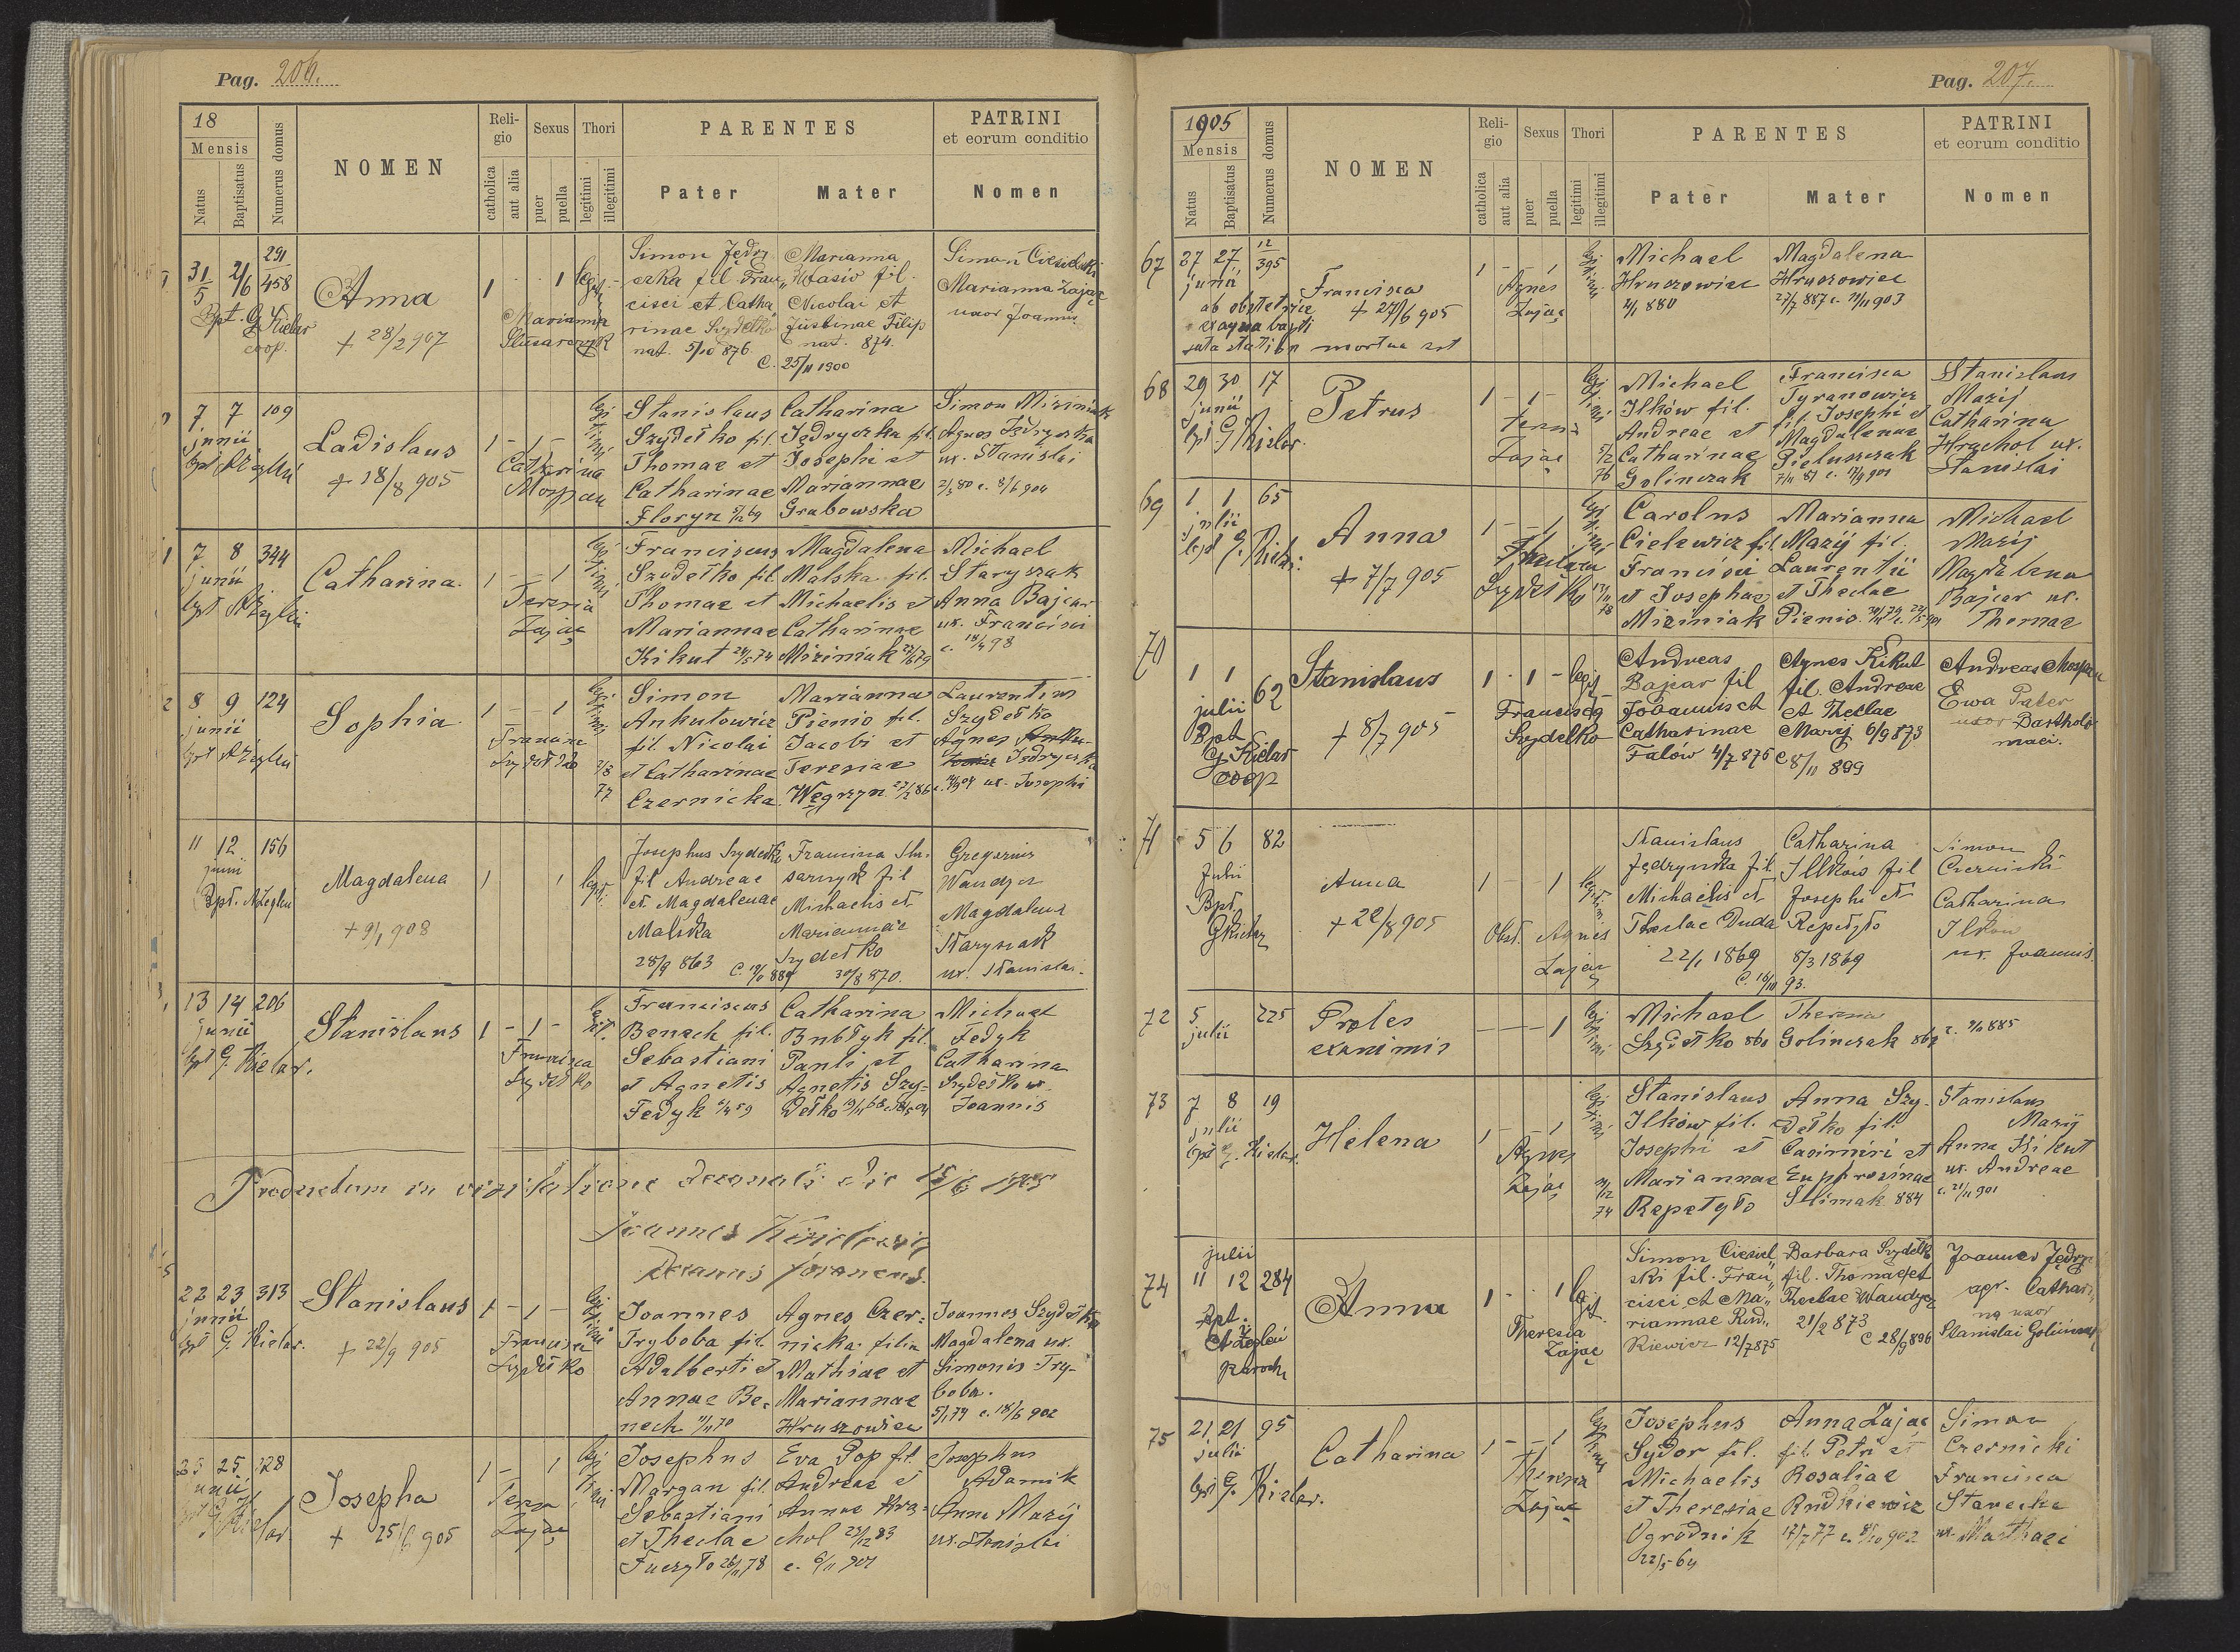 Pag. 206.
18
Mensis
Natus
Baptisatus
Numerus domus
NOMEN
Reli-
gio
catholica
aut alia
Sexus
puer
puella
Thori
legitimi
illegitimi
PARENTES
Pater
Mater
PATRINI
et eorum conditio
Nomen
31/5 2/6 291/458
Bpt. G. Kielar
coop.
Anna
+ 28/2 907
1 1 legit.
Marianna
Slusarczyk
Simon Jędry
czka fil Fran„
cisci et Catha„
rinae Szydełko
nat. 5/10 876
Marianna
Wasio fil.
Nicolai et
Justinae Filip
nat. 874.
C. 25/11 1900
Simon Ciesielski
Marianna Zając
uxor Joannis
7 7 109
junii
bpt A Zięglui
Ladislaus
+ 18/8 905
1 - 1 - legitimi
Catharina
Mospan
Stanislaus
Szydełko fil.
Thomae et
Catharinae
Floryn
Catharina
Jędryczka fil.
Josephi et
Mariannae
Grabowska
Simon Miziniak
Agnes Jędryczka
ux. Stanislai
2/3 80 c. 8/6 904
7 8 344
junii
Catharina
1 - - 1 legitimi
Teresia
Zając
Franciscus
Szydełko fil.
Thomae et
Mariannae
Kikut 24/5 74
Magdalena
Malska fil.
Michaelis et
Catharinae
Miziniak
Michael
Staryszak
Anna Bajcar
ux. Francisci
c. 18/4 98
8 9 124
junii
Sophia
1 - - 1 legitimi
Francisca
Szydełko
Simon
Ankutowicz
fil. Nicolai
et Catharinae
Czernicka
Marianna
Pienio fil.
Jacobi et
Teresiae
Węgrzyn
Laurentius
Szydełko
Agnes
Jędryczka
ux. Josephi
11 12 156
junii
Magdalena
+ 9/1 908
1 1 legit.
Josephus Szydełko
fil Andreae
et Magdalenae
Malska
28/9 863
Francisca Slu-
sarczyk fil
Michaelis et
Mariannae
Szydełko
30/8 870.
Gregorius
Wandycz
Magdalena
Staryszak
ux. Stanislai.
13 14 206
junii
bpt G. Kielar.
Stanislaus
1 - 1 - legit.
Francisca
Szydełko
Franciscus
Benech fil.
Sebastiani
et Agnetis
Fedyk
Catharina
Bubłyk fil.
Pauli et
Agnetis Szy-
dełko
Michael
Fedyk
Catharina
Szydełko ux.
Joannis
Productum in visitatione decanali die 15/6 1905
Joannes
Decanus
22 23 313
junii
bpt G. Kielar.
Stanislaus
+ 22/9 905
1 - 1 - legitimi
Francisca
Szydełko
Joannes
Tryboba fil.
Adalberti et
Annae Be-
nech 11/11 70
Agnes Czer-
nicka filia
Mathiae et
Mariannae
Hruszowiec
Joannes Szydełko
Magdalena ux.
Simonis Try-
boba.
5/1 79 c. 18/6 902
25 25 328
junii
bpt G. Kielar
Josepha
+ 25/6 905
1 - 1 legitimi
Teresa
Zając
Josephus
Margan fil.
Sebastiani
et Theclae
Fuczyło 26/11 78
Eva Pop fil.
Andreae et
Annae Hra-
chol 23/12 83
c. 6/11 901
Josephus
Adamik
Anna Mazij
ux. Stanislai
Pag. 207.
1905
Mensis
Natus
Baptisatus
Numerus domus
NOMEN
Reli-
gio
catholica
aut alia
Sexus
puer
puella
Thori
legitimi
illegitimi
PARENTES
Pater
Mater
PATRINI
et eorum conditio
Nomen
67 27 27 12/395
junii
Francisca
+ 27/6 905
ab obstetrice
ex aqua bapti
sata statim mortua est
1 - 1 legitimi
Agnes
Zając
Michael
Hruszowiec
880
Magdalena
Hruszowiec
27/7 887 c. 11/11 903
68 29 30 17
junii
bpt G. Kielar.
Petrus
1 - 1 - legitimi
Teresia
Zając
Michael
Ilków fil.
Andreae et
Catharinae
Golinczak
Francisca
Tyranowicz
fil Josephi et
Magdalenae
Pieluszczak
Stanislaus
Mazij
Catharina
Hrachol ux.
Stanislai
69 1 1 65
julii
bpt G. Kielar.
Anna
+ 7/7 905
1 - 1 legitimi
Szydełko
Carolus
Cielewicz fil.
Francisci
et Josephae
Miziniak
Marianna
Mazij fil.
Laurentii
et Theclae
Pienio
Michael
Mazij
Magdalena
Bajcar ux.
Thomae
70 1 1 62
julii
Bpt
G. Kielar
coop
Stanislaus
+ 8/7 905
1 - 1 - legit
Francisca
Szydełko
Andreas
Bajcar fil
Joannis et
Catharinae
Falów 4/2 875
Agnes Kikut
fil. Andreae
et Theclae
Mazij 6/9 873
C 8/11 899
Andreas Mospan
Ewa Pater
uxor Bartholo
maei.
71 5 6 82
Julii
Bpt.
G Kielar
Anna
+ 22/8 905
1 - - 1 legitimi
Obst. Agnes
Zając
Stanislaus
Jędryczka fil.
Michaelis et
Theclae Duda
22/1 1869
Catharina
Illków fil
Josephi et
Repetyło
8/3 1869
C. 16/10 93.
Simon
Czernicki
Catharina
Ilkow
ux. Joannis.
72 5 225
julii
Proles
exanimis
- - - 1 legitimi
Michael
Szydełko 860
Theresa
Golinczak 862
c. 9/11 885
73 7 8 19
julii
bpt G. Kielar.
Helena
1 - 1 legitimi
Agnes
Zając
Stanislaus
Ilków fil.
Josephi et
Mariannae
Repetyło
Anna Szy-
dełko fil.
Casimiri et
Euphrosinae
Slimak 884
Stanislaus
Mazij
Anna Kikut
ux. Andreae
c. 21/11 901
julii
74 11 12 284
Bpt.
A Zięglui
paroch
Anna
1 - 1 legit.
Theresia
Zając
Simon Ciesiel
ski fil. Fran„
cisci et Ma„
riannae Rud„
kiewicz 12/7 875
Barbara Szydełk
fil. Thomae et
Theclae Wandycz
21/2 873
C 28/9 896
Joannes Jędry
agr. Cathari„
na uxor
Stanislai Golinczak
75 21 21 95
julii
bpt G. Kielar.
Catharina
1 - - 1 legitimi
Zając
Josephus
Sydor fil.
Michaelis
et Theresiae
Ogrodnik
22/5 64
Anna Zając
fil. Petri et
Rosaliae
Rudkiewicz
17/7 77 c. 8/10 902
Simon
Czernicki
Francisca
Stanecka
ux. Matthaei